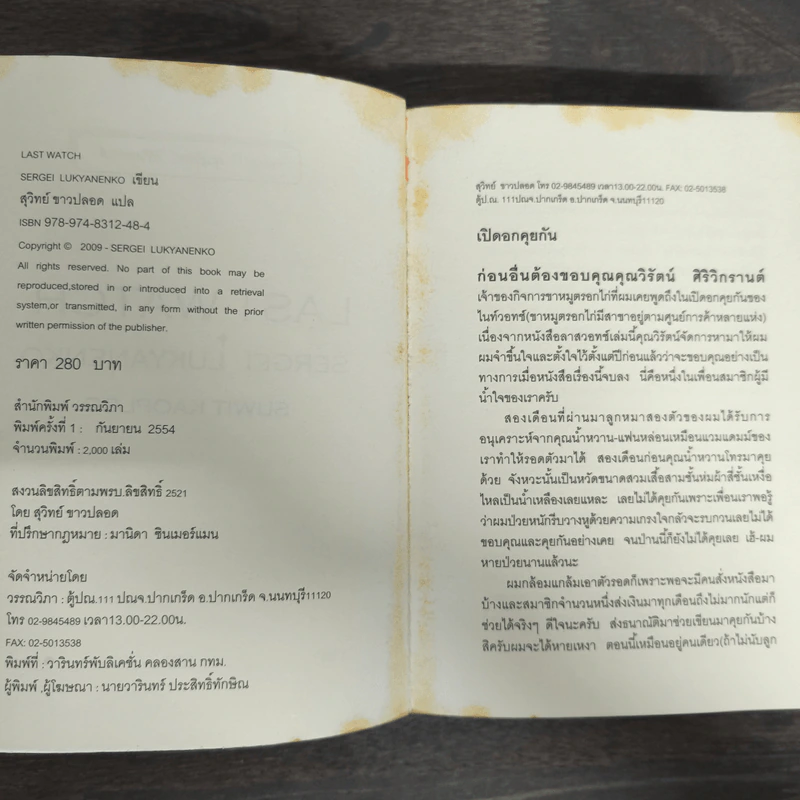 LAST WATCH
SERGEI LUKYANENKO เขียน
สุวิทย์ ขาวปลอด แปล
ISBN 978-974-8312-48-4
Copyright © 2009 - SERGEI LUKYANENKO
All rights reserved. No part of this book may be
reproduced,stored in or introduced into a retrieval
system,or transmitted, in any form without the prior
written permission of the publisher.
ราคา 280 บาท
สำนักพิมพ์ วรรณวิภา
พิมพ์ครั้งที่ 1 : กันยายน 2554
จำนวนพิมพ์ : 2,000 เล่ม
สงวนลิขสิทธิ์ตามพรบ.ลิขสิทธิ์ 2521
โดย สุวิทย์ ขาวปลอด
ที่ปรึกษากฎหมาย : มานิดา ซินเมอร์แมน
จัดจำหน่ายโดย
วรรณวิภา : ตู้ปณ.111 ปณจ.ปากเกร็ด อ.ปากเกร็ด จ.นนทบุรี11120
โทร 02-9845489 เวลา13.00-22.00น.
FAX: 02-5013538
พิมพ์ที่ : วารินทร์พับลิเคชั่น คลองสาน กทม.
ผู้พิมพ์ ,ผู้โฆษณา : นายวารินทร์ ประสิทธิ์ทักษิณ
สุวิทย์ ขาวปลอด โทร 02-9845489 เวลา13.00-22.00น. FAX: 02-5013538
ตู้ป.ณ. 111ปณจ.ปากเกร็ด อ.ปากเกร็ด จ.นนทบุรี11120
เปิดอกคุยกัน
ก่อนอื่นต้องขอบคุณคุณวิรัตน์ ศิริวิกรานต์
เจ้าของกิจการขาหมูตรอกไก่ที่ผมเคยพูดถึงในเปิดอกคุยกันของ
ไนท์วอทซ์(ขาหมูตรอกไก่มีสาขาอยู่ตามศูนย์การค้าหลายแห่ง)
เนื่องจากหนังสือลาสวอทซ์เล่มนี้คุณวิรัตน์จัดการหามาให้ผม
ผมจำขึ้นใจและตั้งใจไว้ตั้งแต่ปีก่อนแล้วว่าจะขอบคุณอย่างเป็น
ทางการเมื่อหนังสือเรื่องนี้จบลง นี่คือหนึ่งในเพื่อนสมาชิกผู้มี
น้ำใจของเราครับ
สองเดือนที่ผ่านมาลูกหมาสองตัวของผมได้รับการ
อนุเคราะห์จากคุณน้ำหวาน-แฟนหล่อนเหมือนแวมแดมม์ของ
เราทำให้รอดตัวมาได้ สองเดือนก่อนคุณน้ำหวานโทรมาคุย
ด้วย จังหวะนั้นเป็นหวัดขนาดสวมเสื้อสามชั้นห่มผ้าสี่ชั้นเหงื่อ
ไหลเป็นน้ำเหลืองเลยแหละ เลยไม่ได้คุยกันเพราะเพื่อนเราพอรู้
ว่าผมป่วยหนักรีบวางหูด้วยความเกรงใจกลัวจะรบกวนเลยไม่ได้
ขอบคุณและคุยกันอย่างเคย จนป่านนี้ก็ยังไม่ได้คุยเลย เฮ้-ผม
หายป่วยนานแล้วนะ
ผมกล้อมแกล้มเอาตัวรอดก็เพราะพอจะมีคนสั่งหนังสือมา
บ้างและสมาชิกจำนวนหนึ่งส่งเงินมาทุกเดือนถึงไม่มากนักแต่ก็
ช่วยได้จริงๆ ดีใจนะครับ ส่งธนาณัติมาช่วยเขียนมาคุยกันบ้าง
สิครับผมจะได้หายเหงา ตอนนี้เหมือนอยู่คนเดียว(ถ้าไม่นับลูก